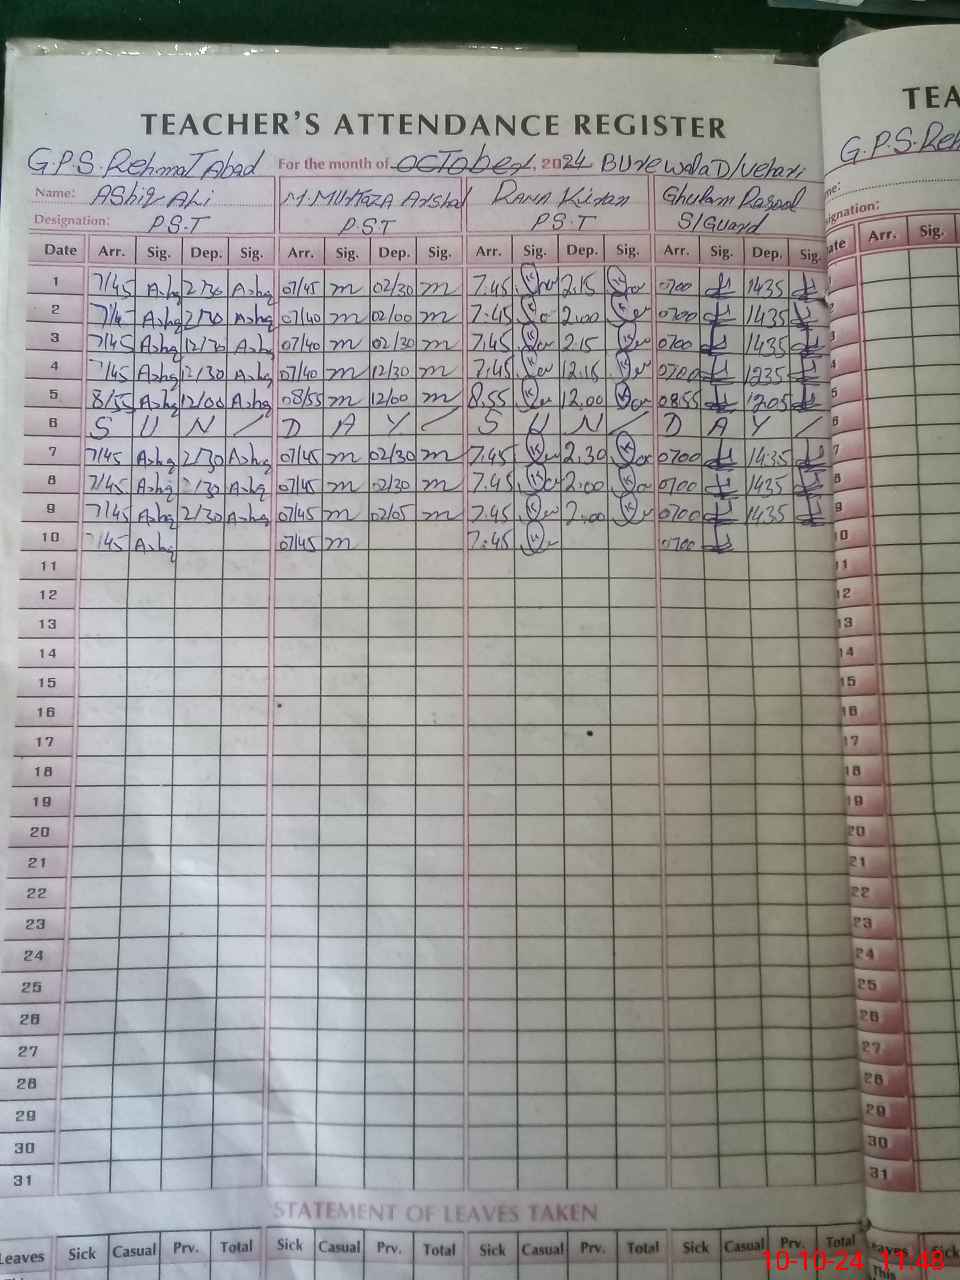 TEACHER'S ATTENDANCE REGISTER
G.P.S. Rehmat Abad For the month of October, 2024 Burewala D/Vehari
Name: AShiq ALi M. MURTAZA Arshad RANA Kiran Ghulam Rasool
Designation: P.S.T P.S.T P.S.T S/Guard
Date Arr. Sig. Dep. Sig. Arr. Sig. Dep. Sig. Arr. Sig. Dep. Sig. Arr. Sig. Dep. Sig.
1 7/45 Ashq 2/30 Ashq 07/45 m 02/30 m 7.45 2.15 0700 1435
2 Ashq Ashq 07/40 m 02/00 m 7.45 2.00 0700 1435
3 7/45 Ashq Ashq 07/40 m 02/30 m 7.45 2.15 0700 1435
4 7/45 Ashq 12/30 Ashq 07/40 m 12/30 m 7.45 12.15 0700 1235
5 8/55 Ashq 12/00 Ashq 08/55 m 12/00 m 8.55 12.00 0855 1205
6 S U N / D A Y / S U N / D A Y /
7 7/45 Ashq 2/30 Ashq 07/45 m 02/30 m 7.45 2.30 0700 1435
8 7/45 Ashq 2/30 Ashq 07/45 m 02/30 m 7.45 2.00 0700 1435
9 7/45 Ashq 2/30 Ashq 07/45 m 02/05 m 7.45 2.00 0700 1435
10 7/45 Ashq 07/45 m 7.45 0700
11
12
13
14
15
16
17
18
19
20
21
22
23
24
25
26
27
28
29
30
31
STATEMENT OF LEAVES TAKEN
Leaves Sick Casual Prv. Total Sick Casual Prv. Total Sick Casual Prv. Total Sick Casual Prv. Total
TEA
G.P.S. Reh
Arr. Sig.
3
4
5
6
7
8
9
10
11
12
13
14
15
16
17
18
19
20
21
22
23
24
25
26
27
28
29
30
31
10-10-24 11:48